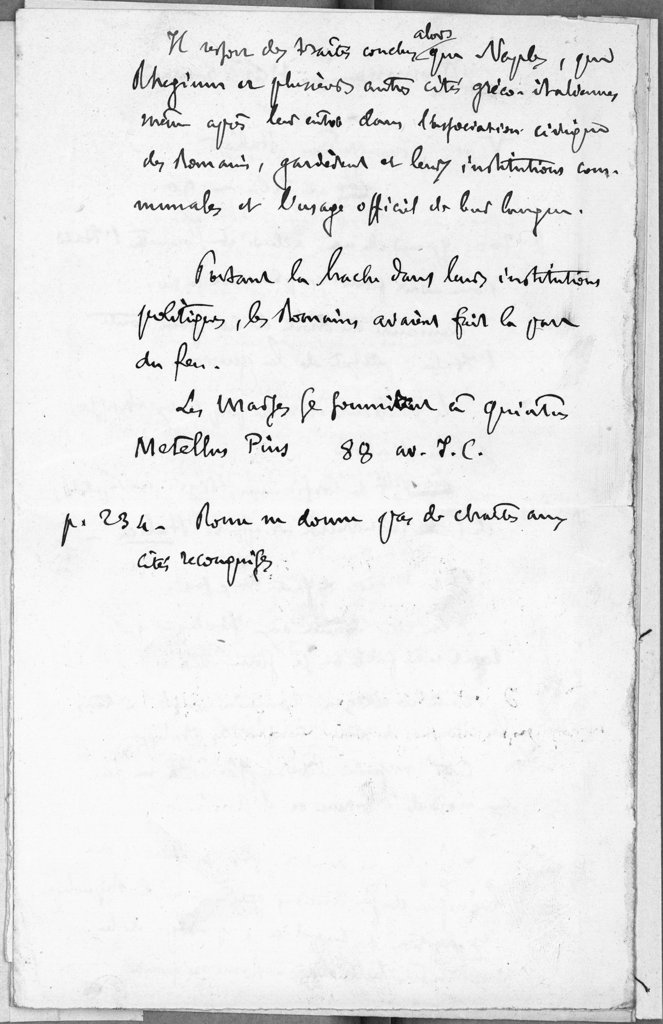 Il ressort des traités conclus alors que Naples, que
Rhegium et plusieurs autres cités gréco-italiennes
même après leur entrée dans l'association civique
des Romains, gardèrent et leurs institutions com-
munales et l'usage officiel de leur langue.
Portant la hache dans leurs institutions
politiques, les Romains avaient fait la part
du feu.
Les Marses se soumirent à Quintus
Metellus Pius 88 av. J.C.
p. 234 - Rome ne donne pas de chartes aux
cités reconquises